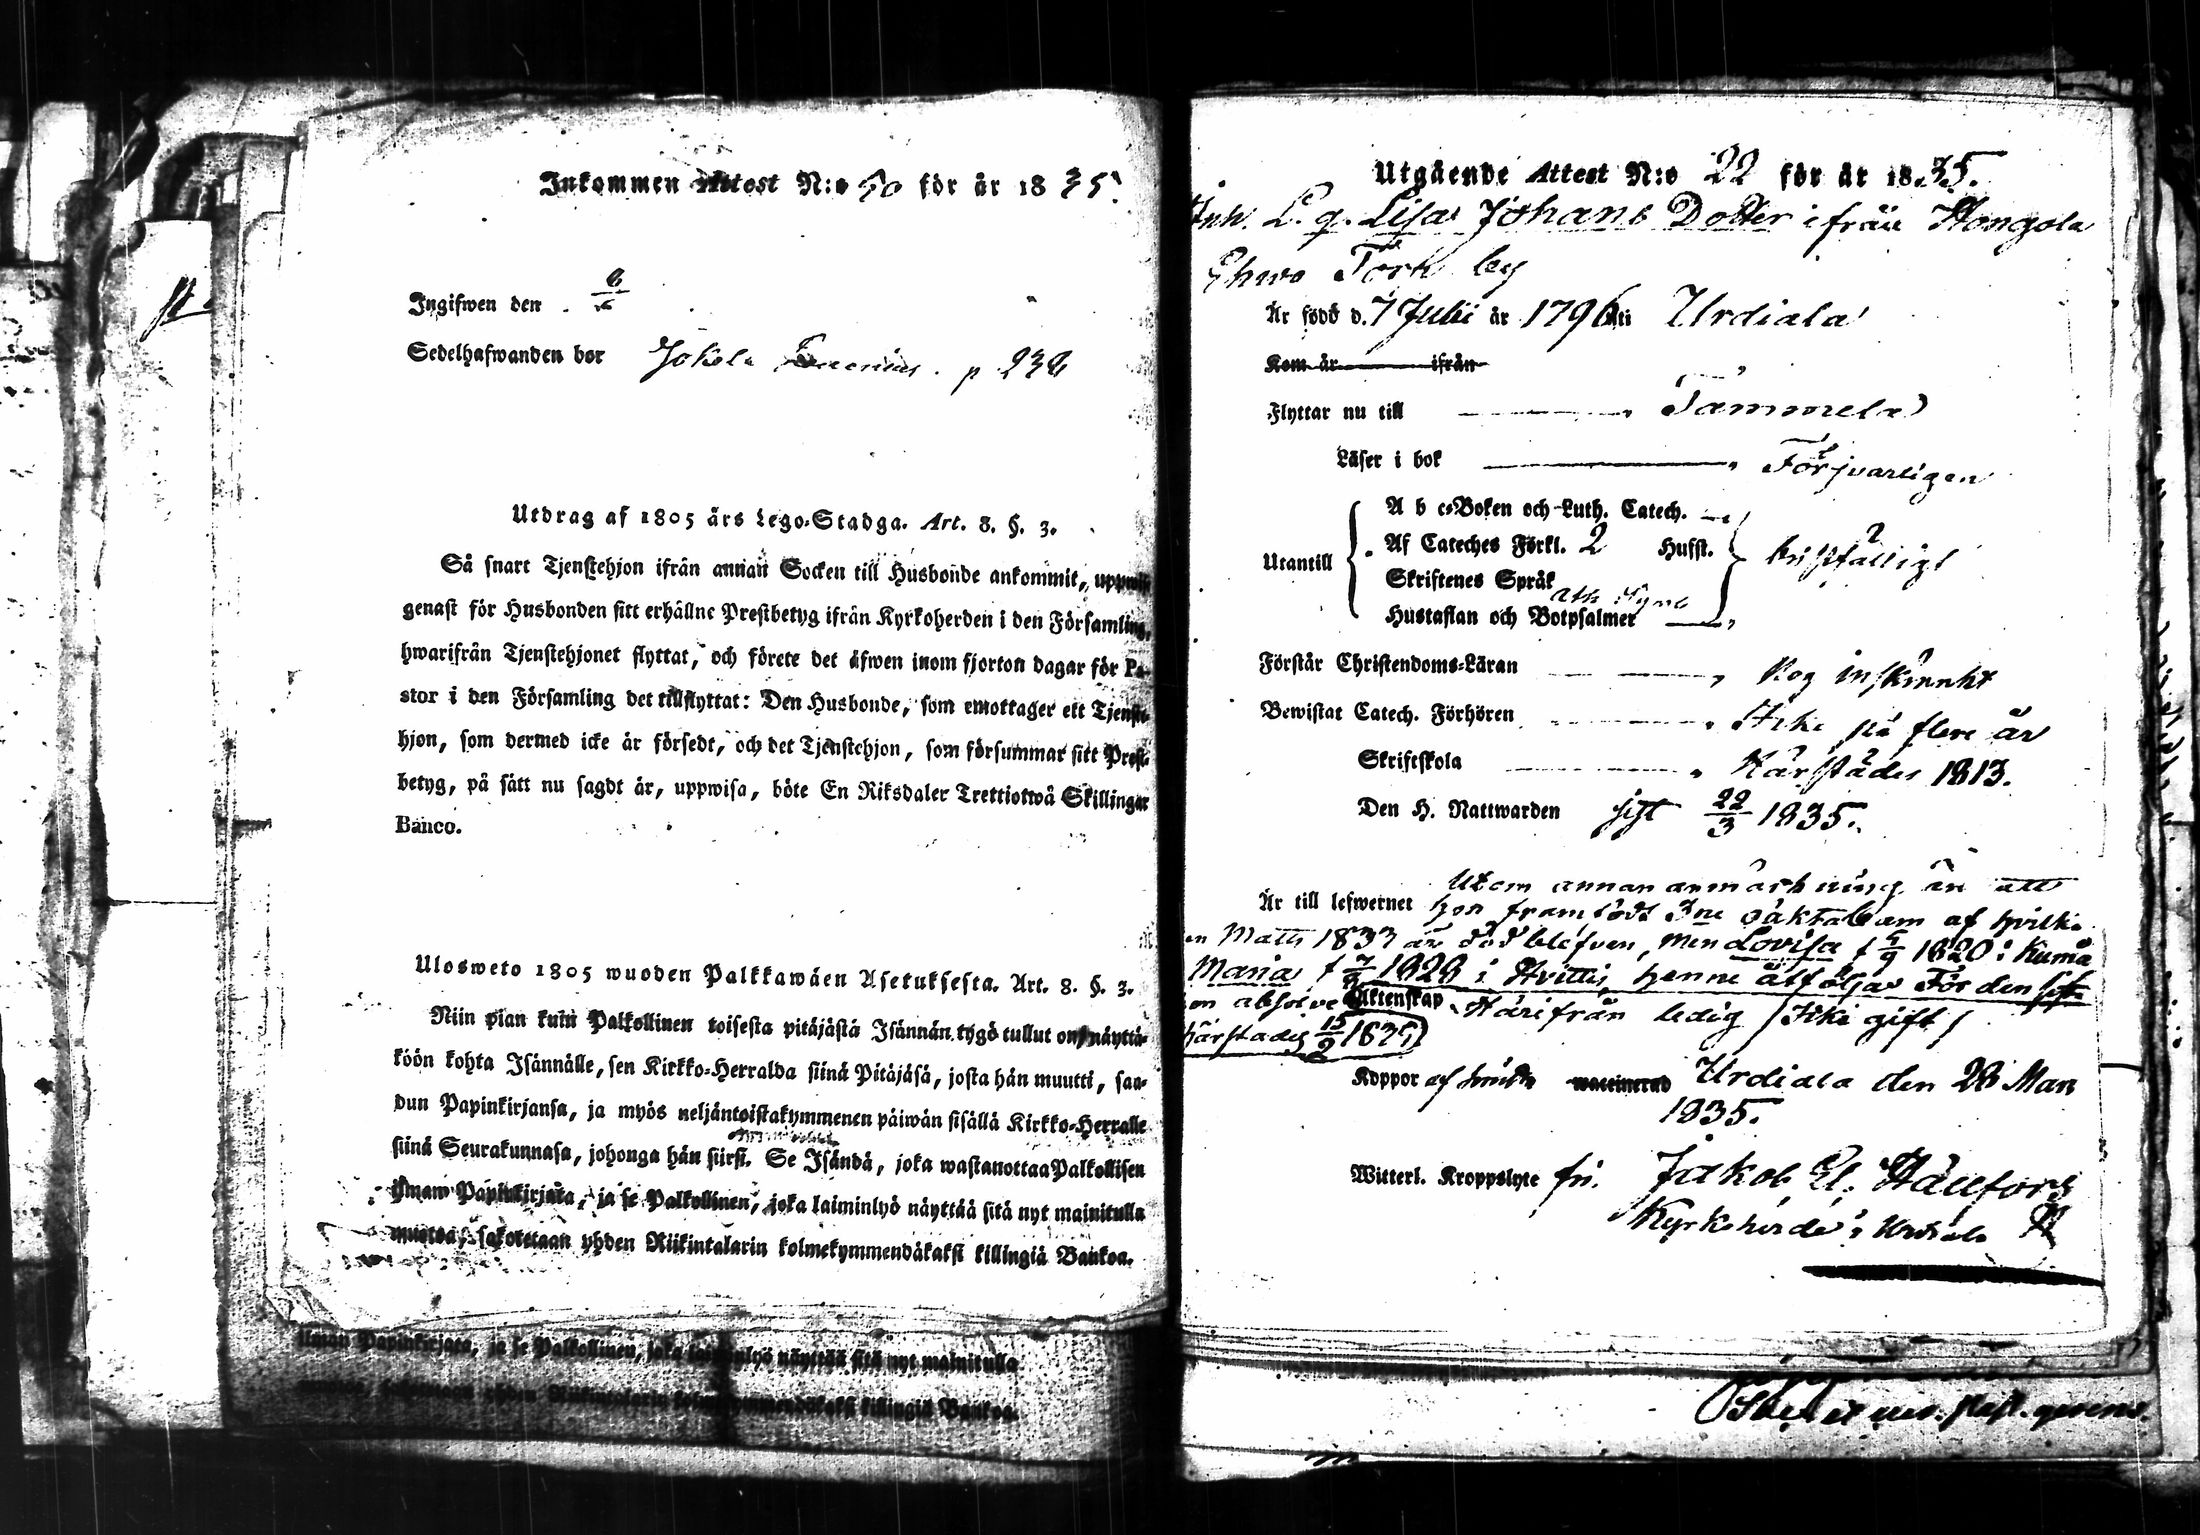 Inkommen Attest N:o 50 för år 1835.
Ingifwen den 6
Sedelhafwanden bor Jokela p 236
Utdrag af 1805 års Lego-Stadga. Art. 8. §. 3.
Så snart Tjenstehjon ifrån annan Socken till Husbonde ankommit,
genast för Husbonden sitt erhållne Prestbetyg ifrån Kyrkoherden i den Församling,
hwarifrån Tjenstehjonet flyttat, och förete det äfwen inom fjorton dagar för Pa-
stor i den Församling det tillflyttat: Den Husbonde, som emottager ett Tjenste-
hjon, som dermed icke är försedt, och det Tjenstehjon, som försummar sitt Prest-
betyg, på sätt nu sagdt är, uppwisa, böte En Riksdaler Trettiotwå Skillingar
Banco.
Ulosweto 1805 wuoden Palkkawäen Asetuksesta. Art. 8. §. 3.
Niin pian kuin Palkollinen toisesta pitäjästä Isännän tygö tullut on, näyttä-
köön kohta Isännälle, sen Kirkko-Herralda siinä Pitäjäsä, josta hän muutti, saa-
dun Papinkirjansa, ja myös neljäntoistakymmenen päiwän sisällä Kirkko-Herralle
siinä Seurakunnasa, johonga hän siirsi. Se Isändä, joka wastanottaa Palkollisen
ilman Papinkirjata, ja se Palkollinen, joka laiminlyö näyttää sitä nyt mainitulla
muotoa, sakotetaan yhden Riikintalarin kolmekymmendäkaksi killingiä Bankoa.
ilman Papinkirjata, ja se Palkollinen, joka laiminlyö näyttää sitä nyt mainitulla
killingiä Bankoa.
Utgående Attest N:o 22 för år 1835.
Inh. L. q. Lisa Johans Dotter ifrån Hongola
Torp by
Är född d. 7 Julii år 1796 i Urdiala
Kom år ifrån
Flyttar nu till Tammela
Läser i bok Försvarligen
A b c-Boken och Luth. Catech.
Utantill Af Cateches Förkl. 2 Husst. bristfälligt
Skriftenes Språk Ath. Symb
Hustaflan och Botpsalmer
Förstår Christendoms-Läran Nog inskränkt
Bewistat Catech. Förhören Icke på flere år
Skriftskola Härstädes 1813.
Den H. Nattwarden sist 22/3 1835.
Utom annan anmärkning än att
Är till lefwernet hon framfödt 3ne oäkta barn af hvilka
en Matts 1833 är död blefven, men Lovisa f 5/9 1820 i Kumå
Maria f 1828 i Hvittis henne åtföljas För den
hon absolve Äktenskap Härifrån ledig / Icke gift /
härstades 15/2 1835
Koppor af haft waccinerad Urdiala den 28 Mars
1835.
Witterl. Kroppslyte fri. Jakob El. Hällfors
Kyrkoherde i Urdiala